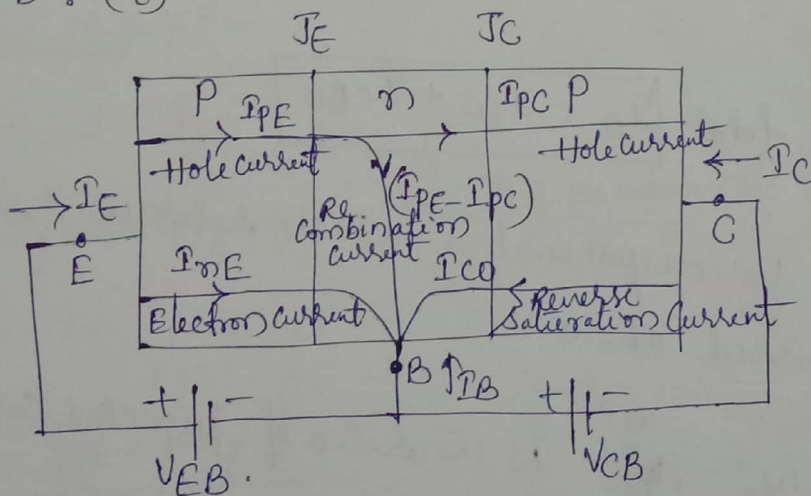 (b)
J_E J_C
P I_pE n I_pC P
Hole current Hole current
→ I_E (I_pE - I_pC) ← I_C
Re
combination
current
E C
I_nE I_CO
Electron current Reverse
Saturation Current
B ↑I_B
+ - + -
V_EB . V_CB